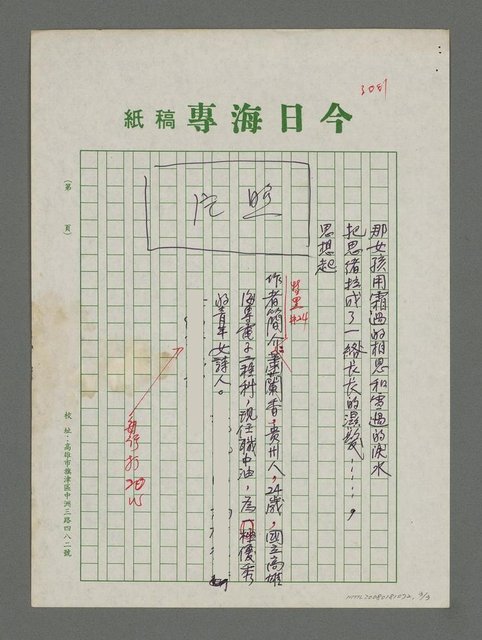 今日海專稿紙
那女孩用霜過的相思和雪過的淚水
把思緒拉成了一綹長長的濕髮……,
思想起
照片
作者簡介:葉蘭香,貴州人,24歲,國立高雄
海專電子工程科,現任職中油,為一極優秀
的青年女詩人。
特黑#24
每行打20字
(第 頁)
校址:高雄市旗津區中洲三路四八二號
NMTL20080181072, 3/3